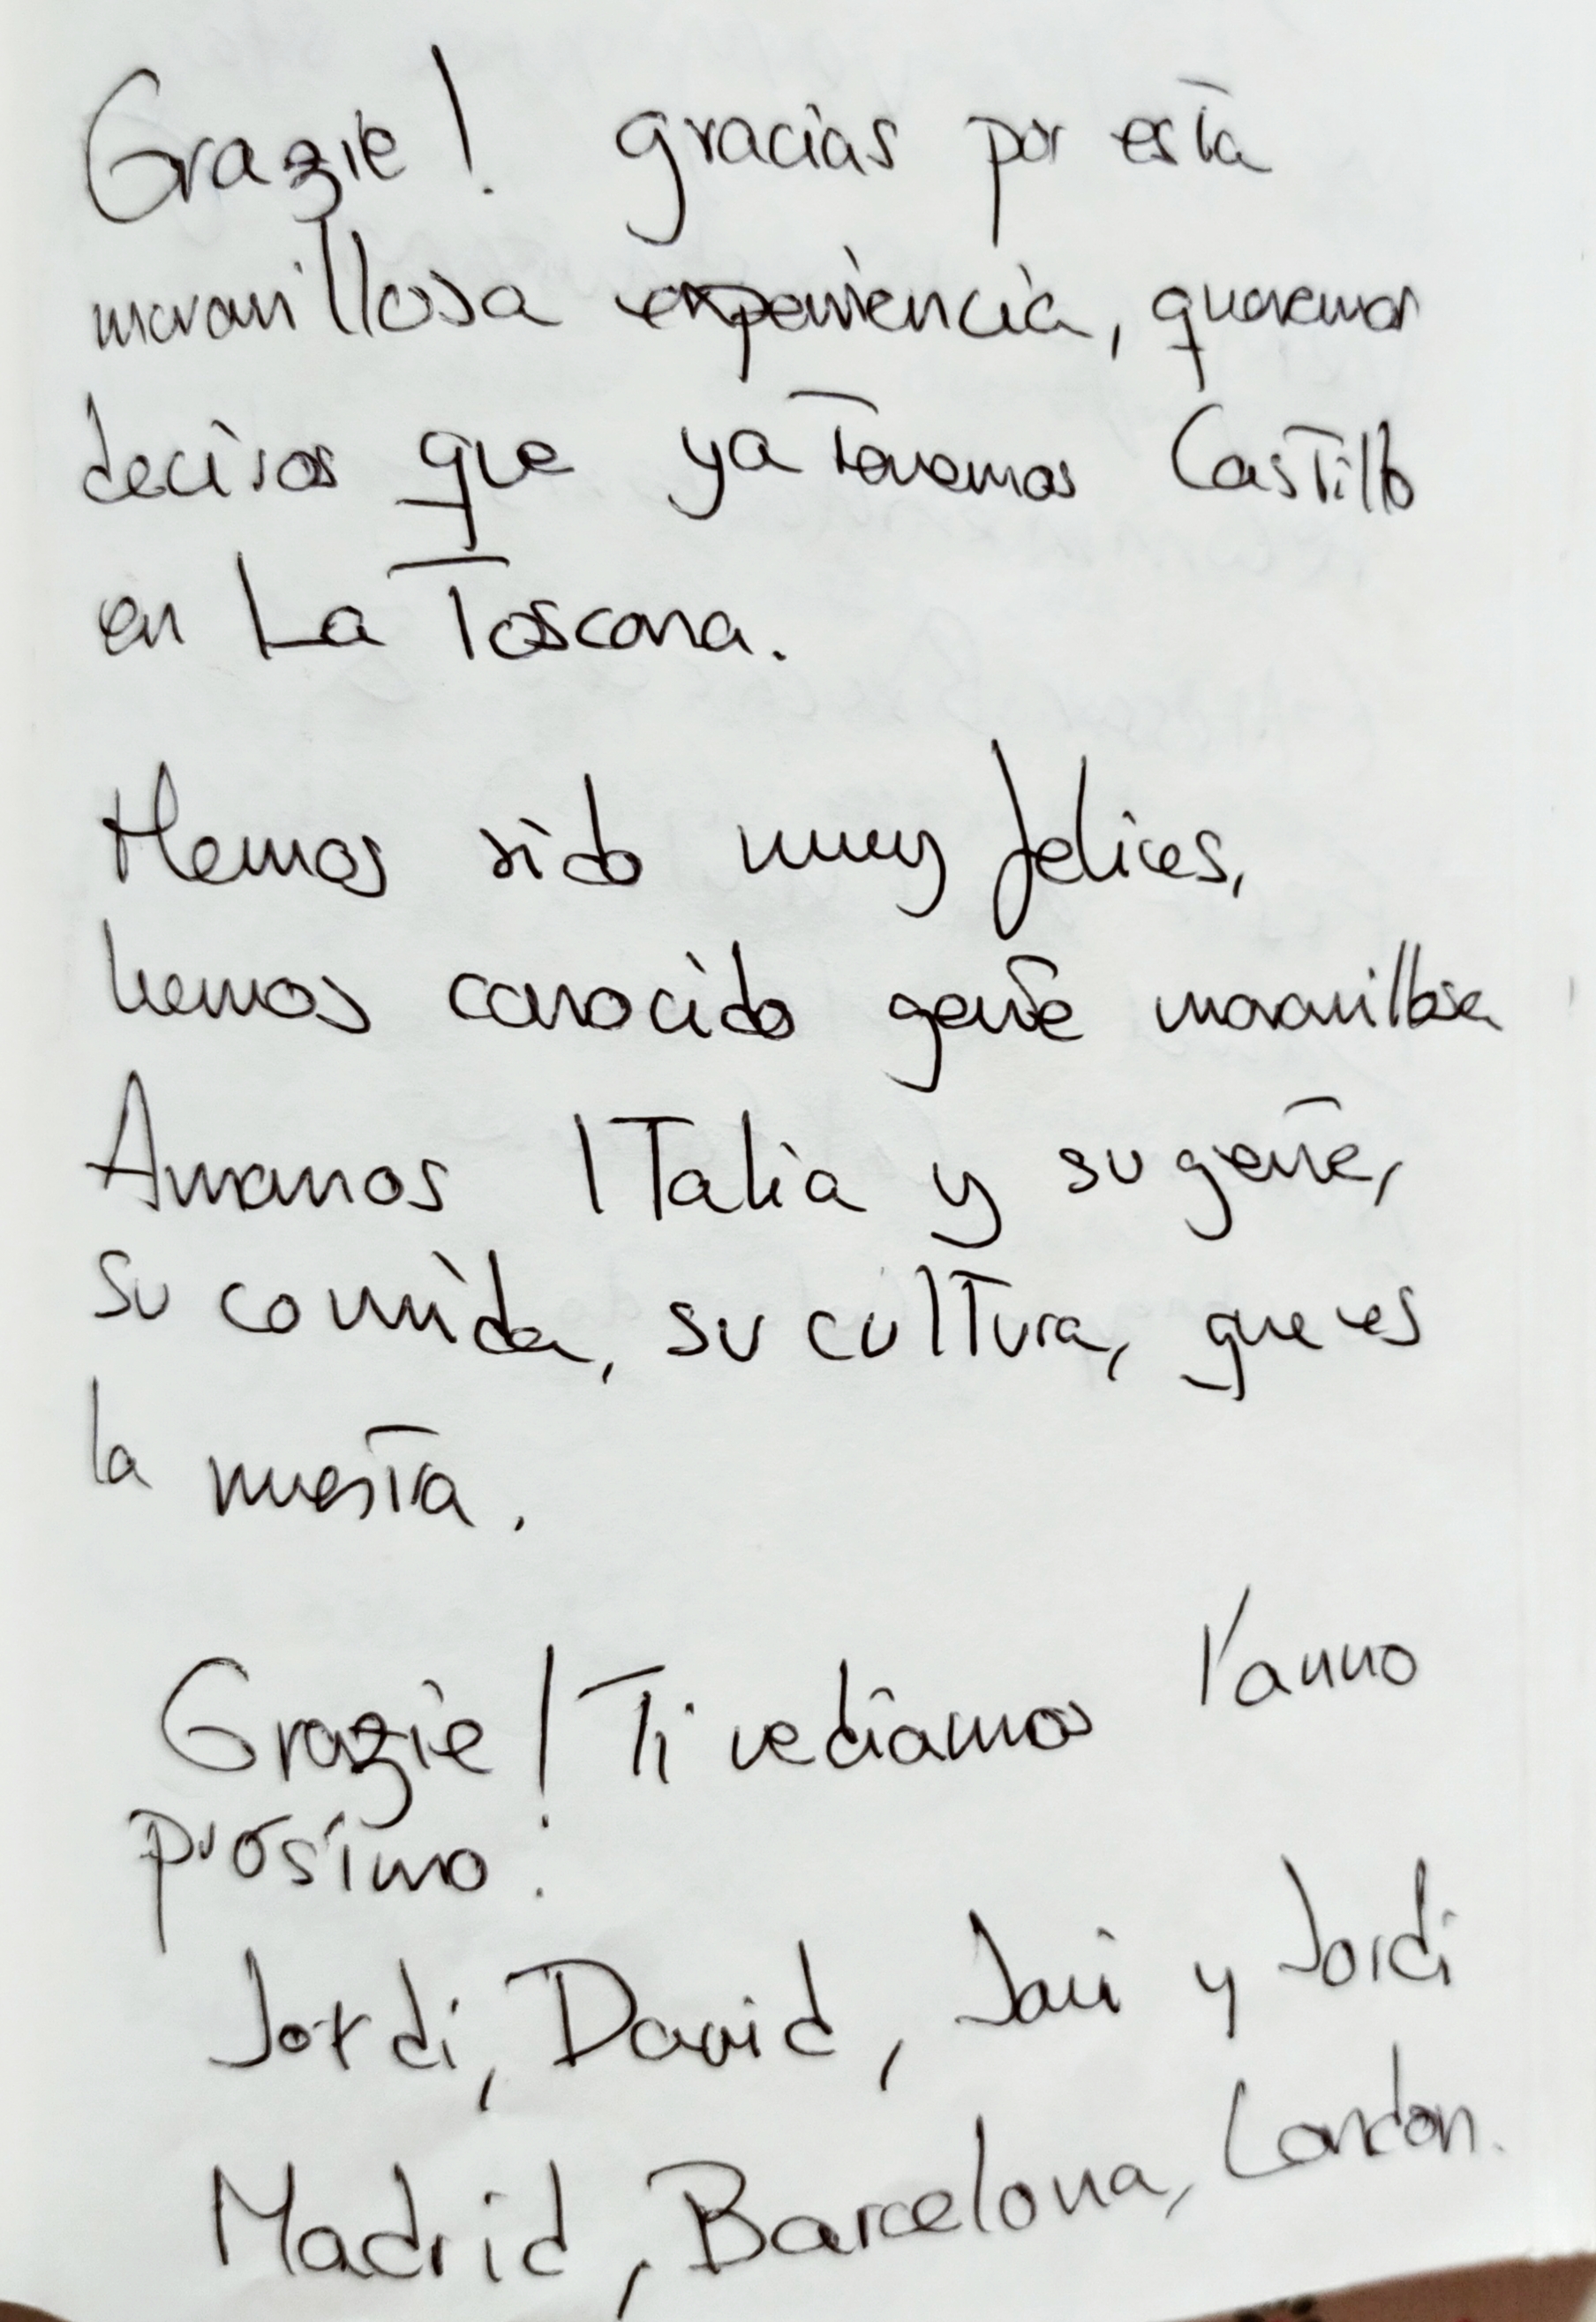 Grazie! gracias por esta
maravillosa experiencia, queremos
deciros que ya tenemos Castillo
en La Toscana.
Hemos sido muy felices,
hemos conocido gente maravillosa
Amamos ITalia y su gente,
su comida, su cultura, que es
la nuestra.
Grazie! Ti vediamos l'anno
prosimo!
Jordi, David, Javi y Jordi
Madrid, Barcelona, London.